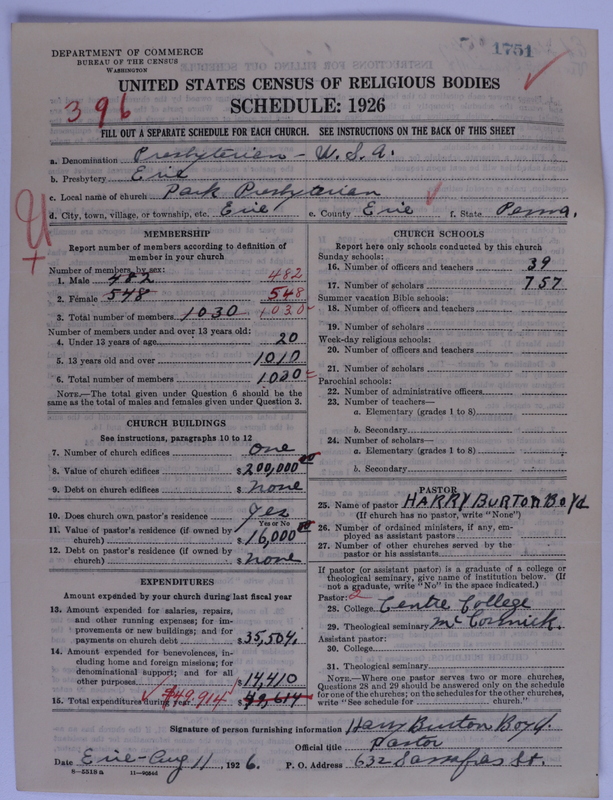 DEPARTMENT OF COMMERCE
BUREAU OF THE CENSUS
WASHINGTON
1751
UNITED STATES CENSUS OF RELIGIOUS BODIES
SCHEDULE: 1926
396
FILL OUT A SEPARATE SCHEDULE FOR EACH CHURCH. SEE INSTRUCTIONS ON THE BACK OF THIS SHEET
a. Denomination Presbyterian - U.S.A.
b. Presbytery Erie
c. Local name of church Park Presbyterian
d. City, town, village, or township, etc. Erie e. County Erie f. State Penna.
MEMBERSHIP
Report number of members according to definition of
member in your church
Number of members by sex:
1. Male 482 482
2. Female 548 548
3. Total number of members 1030 1030
Number of members under and over 13 years old:
4. Under 13 years of age 20
5. 13 years old and over 1010
6. Total number of members 1030
NOTE.—The total given under Question 6 should be
same as the total of males and females given under Question 3.
CHURCH BUILDINGS
See instructions, paragraphs 10 to 12
7. Number of church edifices One
8. Value of church edifices $200,000 00
9. Debt on church edifices $ None
10. Does church own pastor's residence Yes
Yes or No
11. Value of pastor's residence (if owned by
church) $16,000 00
12. Debt on pastor's residence (if owned by
church) $ None
EXPENDITURES
Amount expended by your church during last fiscal year
13. Amount expended for salaries, repairs,
and other running expenses; for im-
provements or new buildings; and for
payments on church debt $35,504.
14. Amount expended for benevolences, in-
cluding home and foreign missions; for
denominational support; and for all
other purposes $14,410
15. Total expenditures during year $49,914 $49,614
CHURCH SCHOOLS
Report here only schools conducted by this church
Sunday schools:
16. Number of officers and teachers 39
17. Number of scholars 757
Summer vacation Bible schools:
18. Number of officers and teachers
19. Number of scholars
Week-day religious schools:
20. Number of officers and teachers
21. Number of scholars
Parochial schools:
22. Number of administrative officers
23. Number of teachers—
a. Elementary (grades 1 to 8)
b. Secondary
24. Number of scholars—
a. Elementary (grades 1 to 8)
b. Secondary
PASTOR
25. Name of pastor HARRY BURTON BOYD
(If church has no pastor, write "None")
26. Number of ordained ministers, if any, em-
ployed as assistant pastors
27. Number of other churches served by the
pastor or his assistants
If pastor (or assistant pastor) is a graduate of a college or
theological seminary, give name of institution below. (If
not a graduate, write "No" in the space indicated.)
Pastor: 2
28. College Centre College
29. Theological seminary McCormick.
Assistant pastor:
30. College
31. Theological seminary
NOTE.—Where one pastor serves two or more churches,
Questions 28 and 29 should be answered only on the schedule
for one of the churches; on the schedules for the other churches,
write "See schedule for church."
Signature of person furnishing information Harry Burton Boyd.
Official title Pastor
Date Erie - Aug 11, 1926. P. O. Address 632 Sassafras St.
8—5518 a